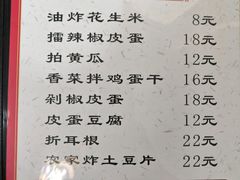 油炸花生米 8元
擂辣椒皮蛋 18元
拍黄瓜 12元
香菜拌鸡蛋干 16元
剁椒皮蛋 18元
皮蛋豆腐 12元
折耳根 22元
农家炸土豆片 22元